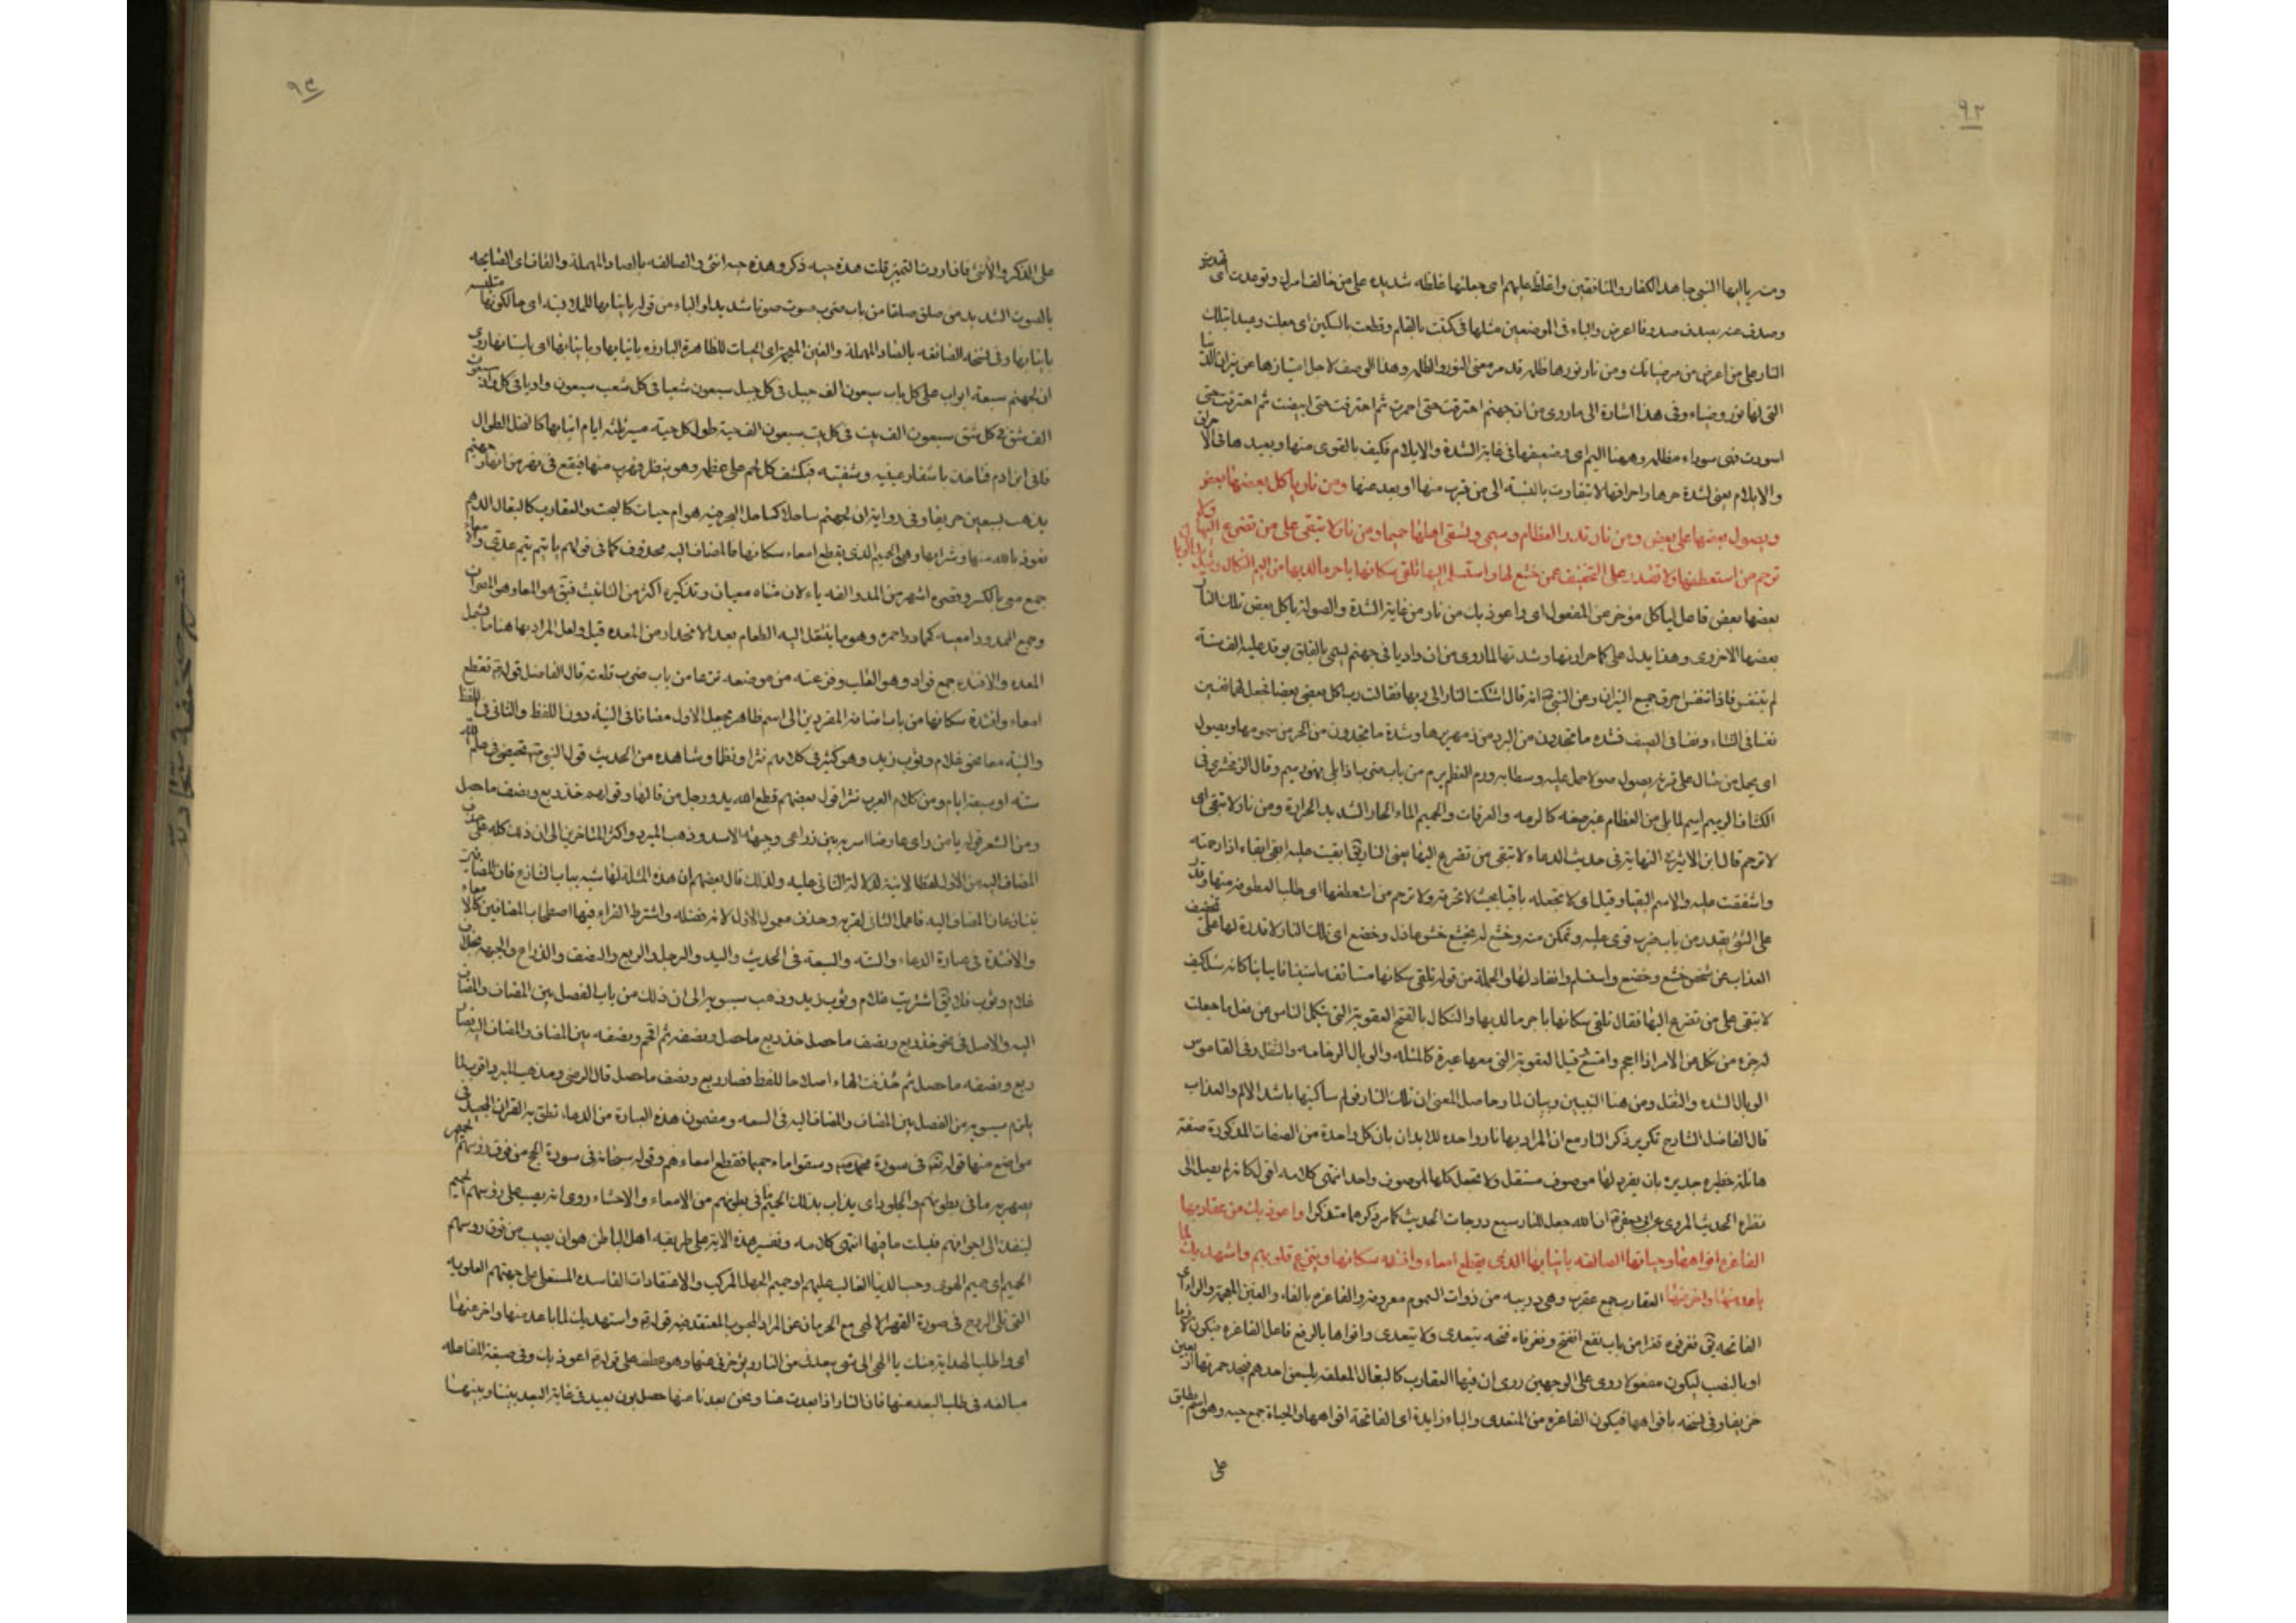 ٩٢
ومنه يا ايها النبي جاهد الكفار والمنافقين واغلظ عليهم اى جعلتها غلظه شديده على من خالف امرك وتوعدت اى
وصدف عنه يصدف صدوفا اعرض والباء فى الموضعين مثلها فى كتبت بالقلم وقطعت بالسكين اى جعلت وعيدا بتلك
النار على من اعرض من مرضياتك ومن نار نورها ظلمه قد مر معنى النور والظلمه وهذا الوصف لاجل امتيازها عن نيران
التى لها نور وضياء وفى هذا اشارة الى ما روى من ان جهنم احترقت حتى احمرت ثم احترقت حتى ابيضت ثم احترقت حتى
اسودت فهى سوداء مظلمه وهينها اليم اى وضعيفها فى غاية الشدة والايلام فكيف بالقوى منها وبعيدها فى
والايلام يعنى لشدة حرها واحراقها لا تتفاوت بالنسبة الى من قرب منها او بعد عنها ومن نار ياكل بعضها بعض
ويصول بعضها على بعض ومن نار تذر العظام رميما وتسقى اهلها حميما ومن نار لا تبقى على من تضرع اليها ولا
ترحم من استعطفها ولا تقدر على التخفيف عمن خشع لها واستسلم اليها تلقى سكانها باحر ما لديها من اليم النكال وشديد الوبال
بعضها بعض فاعل لياكل مؤخر عن المفعول اى واعوذ بك من نار من غاية الشدة والصولة ياكل بعض تلك النار
بعضها الاخرى وهذا يدل على كمال حرارتها وشدتها لما روى من ان واديا فى جهنم يسمى بالفلق يوقد عليه الف سنة
لم يتنفس فاذا تنفس احرق جميع النيران وعن النبى انه قال اشتكت النار الى ربها فقالت رب اكل بعضى بعضا فجعل لها نفسين
نفسا فى الشتاء ونفسا فى الصيف فشده ما تجدون من البرد من زمهريرها وشدة ما تجدون من الحر من سمومها ويصول
اى يحمل من صال على قرنه يصول صولا حمل عليه وسطا به ورم العظم يرم من باب ضرب اذا بلى فهو رميم وقال الزمخشرى فى
الكشاف الرميم اسم لما بلى من العظام غير صفه كالرمه والرفات والحميم الماء الحار الشديد الحرارة ومن نار لا تبقى اى
لا ترحم قال ابن الاثير فى النهاية فى حديث الدعاء لا تبقى من تضرع اليها يعنى النار يق ابقيت عليه ابقى ابقاء اذا رحمته
واشفقت عليه والاسم البقيا وقيل اى لا تجعله باقيا بحيث لا تحرقه ولا ترحم من استعطفها اى طلب العطوفه منها وقدر
على الشئ يقدر من باب ضرب قوى عليه وتمكن منه وخشع له يخشع خشوعا ذل وخضع اى تلك النار لا قدرة لها على تخفيف
العذاب عن شخص خشع وخضع واستسلم وانقاد لها والجملة من قوله تلقى سكانها مستانفه استينافا بيانيا كانه سئل كيف
لا تبقى على من تضرع اليها فقال تلقى سكانها باحر ما لديها والنكال بالفتح العقوبة التى تنكل الناس عن فعل ما جعلت
له جزءه من نكل عن الامر اذا احجم وامتنع قيل العقوبة التى معها عبرة كالمثله والوبال الوخامه والثقل وفى القاموس
الوبال الشده والثقل ومن هنا للتبيين وبيان لما وحاصل المعنى ان تلك النار فى ساكنيها باشد الالم والعذاب
قال الفاضل الشارح تكرير ذكر النار مع ان المراد بها نار واحده للايذان بان كل واحدة من الصفات المذكورة صفة
هائلة خطيره جديره بان يفرد لها موصوف مستقل ولا تجعل كلها لموصوف واحد انتهى كلامه اقول كانه لم يصل الى
نظره الحديث المروى عن ابى جعفر ان الله جعل للنار سبع درجات الحديث كما مر ذكرهما متذكرا واعوذ بك من عقاربها
الفاغره افواهها وحياتها الصالقه بانيابها الذى يقطع امعاء وافئده سكانها وينزع قلوبهم واستهديك لما
باعد منها واخر عنها العقارب جمع عقرب وهى دويبه من ذوات السموم معروفه والفاغره بالفاء والغين المعجمة والراء اى
الفاتحه يق فغر فوه فغرا من باب نفع انفتح وفغر فاه فتحه يتعدى ولا يتعدى وافواهها بالرفع فاعل الفاغره فيكون لازما
او بالنصب ليكون مفعولا روى على الوجهين روى ان فيها العقارب كالبغال المعلفه يلسعن احدهم فيجد حمرتها اربعين
خريفا وفى نسخه بافواهها فيكون الفاغره من المتعدى والباء زايدة اى الفاتحة افواهها والحياة جمع حيه وهو اسم يطلق
على
٩٣
على الذكر والانثى فاذا اردت التميز قلت هذه حيه ذكر وهذه حيه انثى والصالقه بالصاد المهملة والقاف اى الصايحه
بالصوت الشديد من صلق صلقا من باب ضرب صوت صوتا شديدا والباء من قوله بانيابها للملابسة اى حالكونها متلبسه
بانيابها وفى نسخه الضائفه بالضاد المهملة والغين المعجمه اى الحيات الظاهرة البارزه بانيابها وبانيابها اى باسنانها روى
ان لجهنم سبعة ابواب على كل باب سبعون الف جبل فى كل جبل سبعون شعبا فى كل شعب سبعون واديا فى كل واد سبعون
الف شق فى كل شق سبعون الف بيت فى كل بيت سبعون الف حية طول كل حية مسيرة ثلثه ايام انيابها كالنخل الطوال
فاتى ابن ادم فتاخذ باشفار عينيه وشفتيه فيكشف كل لحم على عظمه وهو ينظر فيهرب منها فيقع فى نهر من انهار جهنم
يذهب بسبعين خريفا وفى رواية ان لجهنم ساحلا كساحل البحر فيه هوام حيات كالبخت والعقارب كالبغال الدهم
نعوذ بالله منها وشرابها وهى الحميم الذى يقطع امعاء سكانها فالمضاف اليه محذوف كما فى قولهم يا تيم تيم عدى والامعاء
جمع معى بالكسر وقصره اشهر من المد والفه ياء لان مثناه معيان وتذكيره اكثر من التانيث فيق هو المعا وهو المصران
وجمع الممدود امعيه كحمار واحمره وهو ما ينتقل اليه الطعام بعد الانحدار من المعده قيل ولعل المراد بها هنا ما يشمل
المعده والافئده جمع فواد وهو القلب ونزعته من موضعه نزعا من باب ضرب قلعته قال الفاضل قوله تقطع
امعاء وافئدة سكانها من باب اضافة المفردين الى اسم ظاهر بجعل الاول مضافا فى النية دون اللفظ والثانى فى اللفظ
والنية معا نحو غلام وثوب زيد وهو كثير فى كلامهم نثرا ونظما وشاهده من الحديث قول النبى تحيضى فى علم الله
سته او سبعة ايام ومن كلام العرب نثرا قول بعضهم قطع الله يد ورجل من قالها وقولهم خذ ربع ونصف ما حصل
ومن الشعر قوله يا من راى عارضا اسر به بين ذراعى وجبهه الاسد وذهب المبرد واكثر المتاخرين الى ان ذلك كله على حذف
المضاف اليه من الاول لفظا لا نية لدلالة الثانى عليه ولذلك قال بعضهم ان هذه المسئلة لها شبه بباب التنازع فان المضافين
يتنازعان المضاف اليه فاعمل الثانى لقربه وحذف معمول الاول لانه فضله واشترط الفراء فيها اصطحاب المضافين كالامعاء
والافئدة فى عبارة الدعاء والسته والسبعة فى الحديث واليد والرجل والربع والنصف والذراع والجبهه بخلاف
غلام وثوب فلا يق اشتريت غلام وثوب زيد وذهب سيبويه الى ان ذلك من باب الفصل بين المضاف والمضاف
اليه والاصل فى نحو خذ ربع ونصف ما حصل خذ ربع ما حصل ونصفه ثم اقحم ونصفه بين المضاف والمضاف اليه فصار
ربع ونصفه ما حصل ثم حذفت الهاء اصلاحا للفظ فصار ربع ونصف ما حصل قال الرضى ومذهب المبرد اقرب لما
يلزم سيبويه من الفصل بين المضاف والمضاف اليه فى السعه ومضمون هذه العبارة من الدعاء نطق به القران المجيد فى
مواضع منها قوله تعالى فى سورة محمد وسقوا ماء حميما فقطع امعاءهم وقوله سبحانه فى سورة الحج من فوق رؤسهم الحميم
يصهر به ما فى بطونهم والجلود اى يذاب بذلك الحميم ما فى بطونهم من الامعاء والاحشاء روى انه يصب على رؤسهم الحميم
لينفذ الى اجوافهم فيسلت ما فيها انتهى كلامه وتفسير هذه الاية على طريقه اهل الباطن هو ان يصب من فوق رؤسهم
الحميم اى حميم الهوى وحب الدنيا الغالب عليهم او حميم الجهل المركب والاعتقادات الفاسده المستعلى على جهتهم العلويه
التى تلى الروح فى صورة القهر الالهى مع الحرمان عن المراد المحبوب المعتقد فيه قوله واستهديك لما باعد منها واخر عنها
اى واطلب الهداية منك يا الهى الى شئ يبعدنى من النار ويؤخرنى عنها وهو عطف على قوله اعوذ بك وفى صيغة المفاعله
مبالغه فى طلب البعد منها فاذا النار اذا ابعدت عنا ونحن بعدنا عنها حصل بون بعيد فى غاية البعد بيننا وبينها